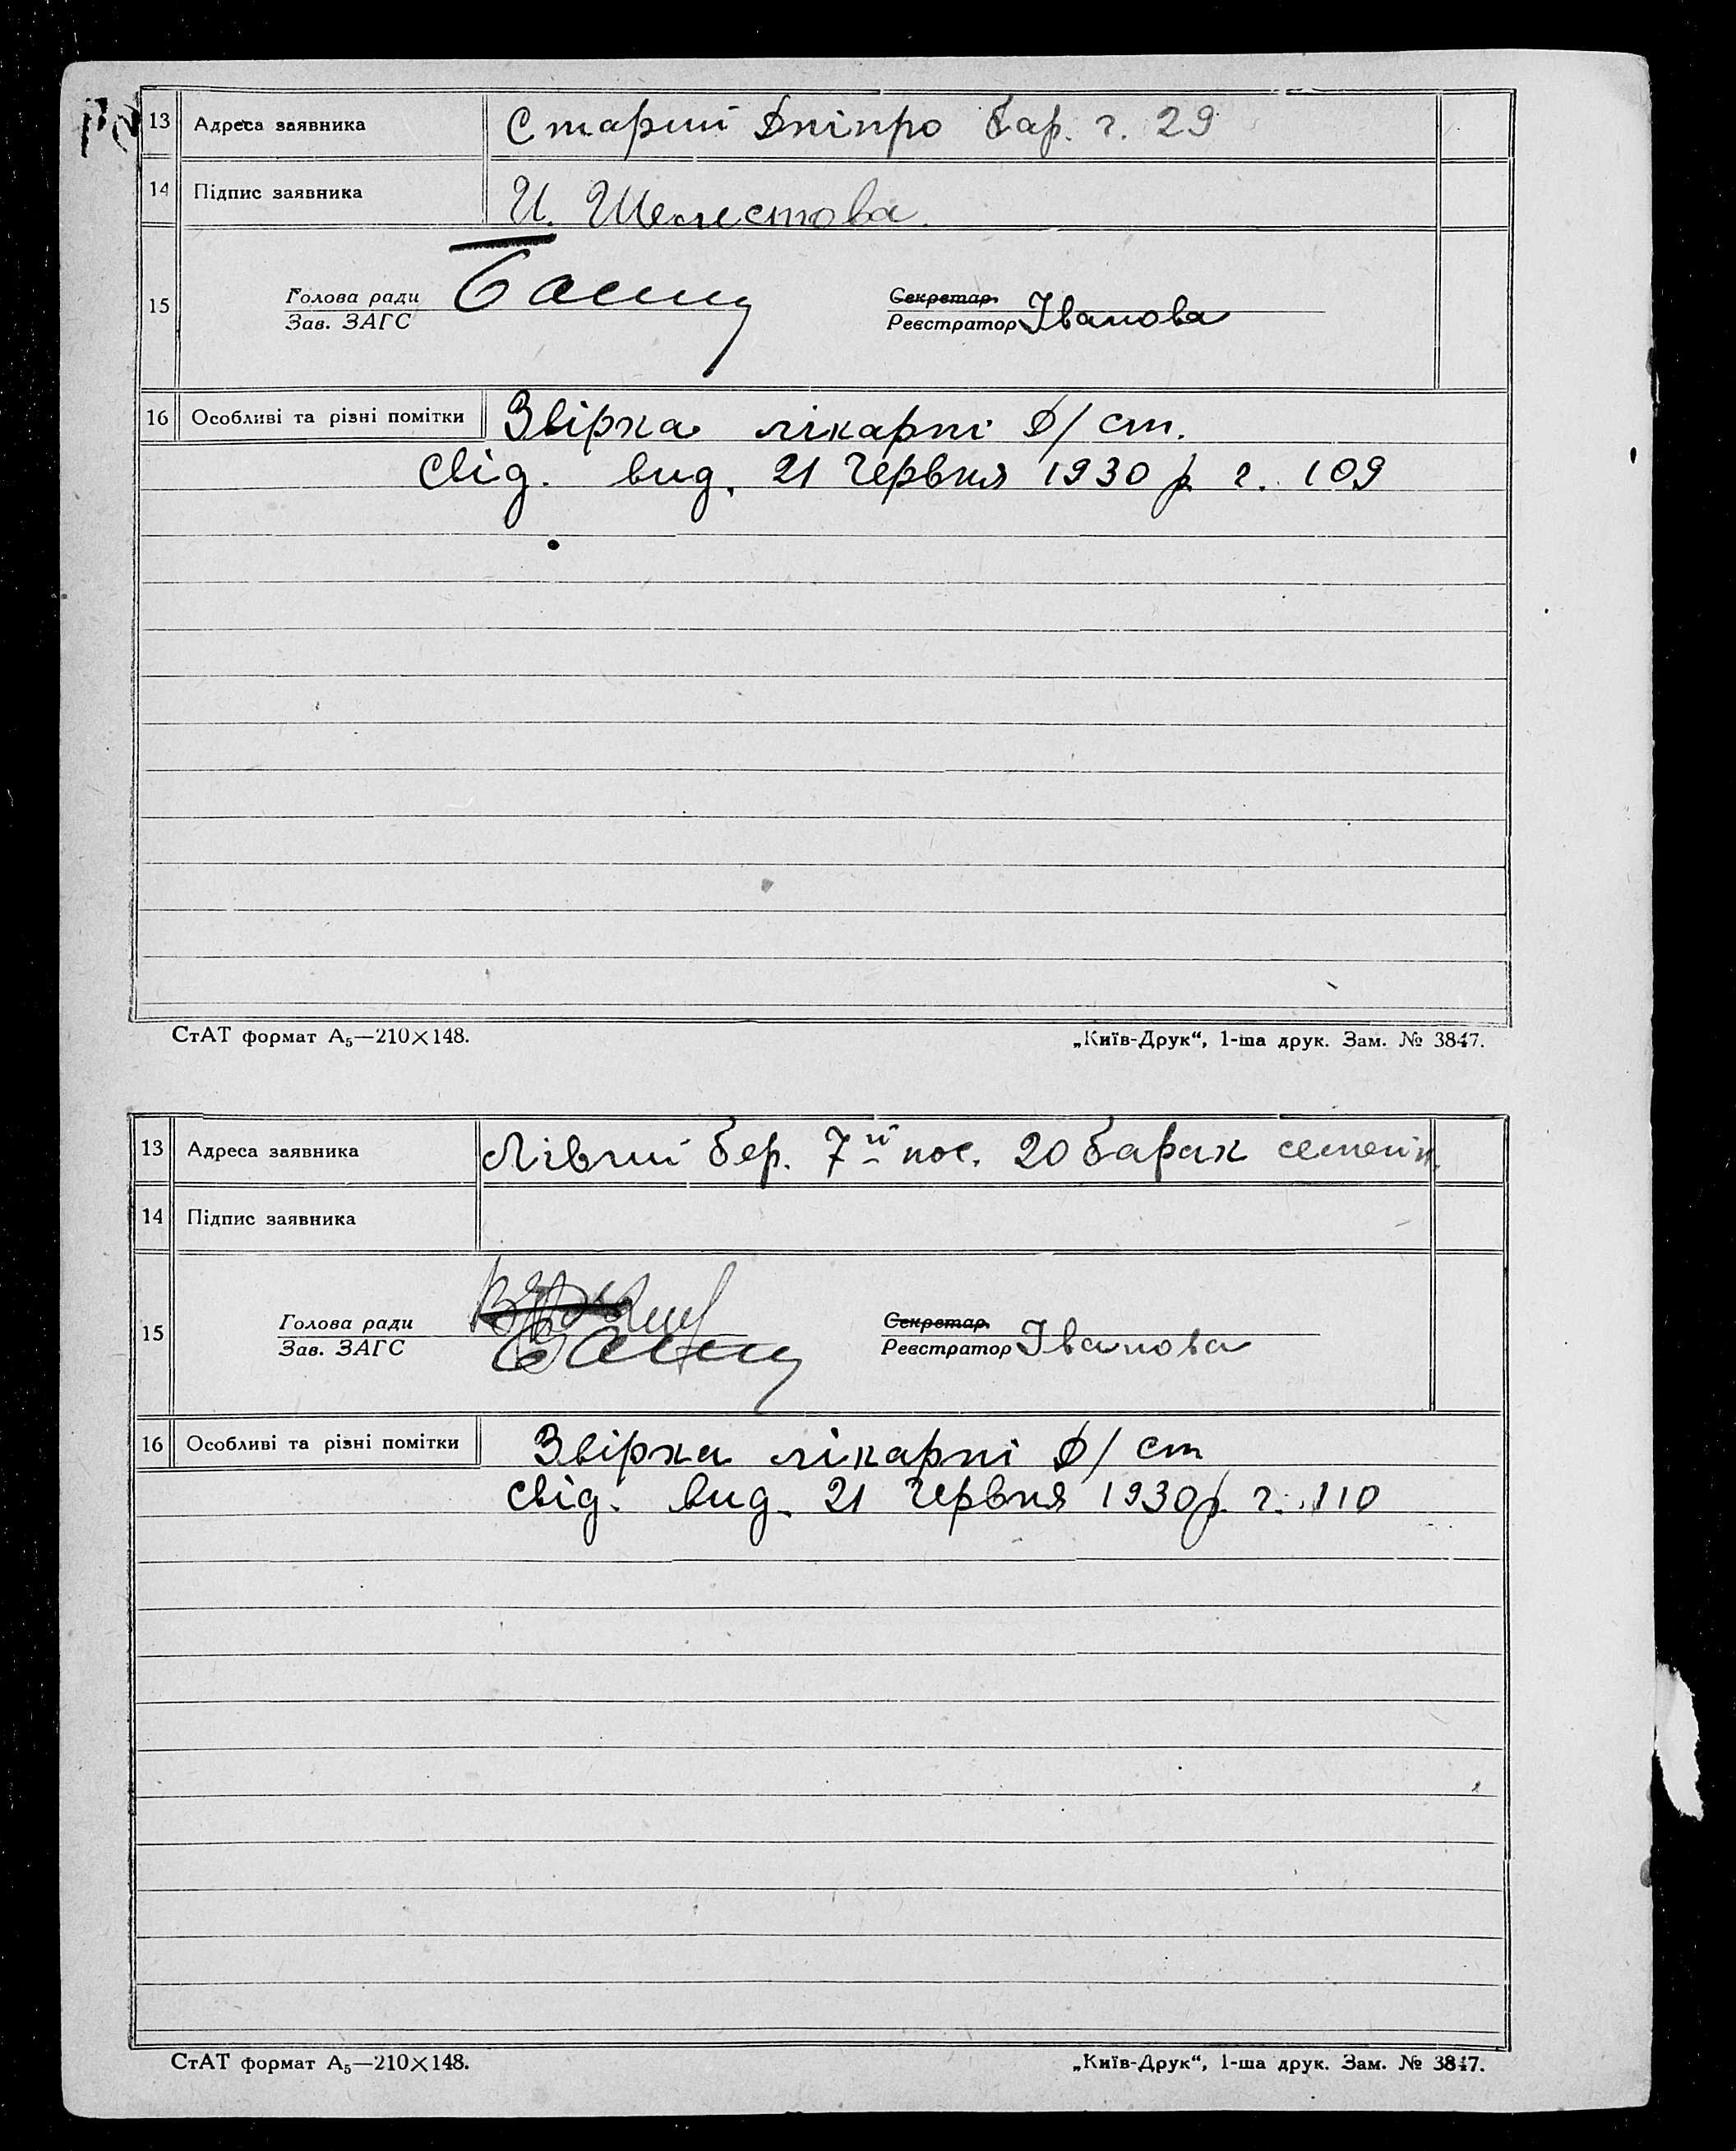 13 Адреса заявника Старий Дніпро бар. ч. 29
14 Підпис заявника И. Шелестова.
Голова ради
15 Секретар Іванова
Зав. ЗАГС Реєстратор
16 Особливі та різні помітки Звірка лікарні Д/ст.
свід. вид. 21 Червня 1930 р ч. 109
СтАТ формат А5—210×148. „Київ-Друк“, 1-ша друк. Зам. № 3847.
13 Адреса заявника Лівий бер. 7ий пос. 20 барак
14 Підпис заявника
Голова ради Секретар
15 Іванова
Зав. ЗАГС Реєстратор
16 Особливі та різні помітки Звірка лікарні Д/ст
свід. вид. 21 Червня 1930р. ч. 110
СтАТ формат А5—210×148. „Київ-Друк“, 1-ша друк. Зам. № 3847.